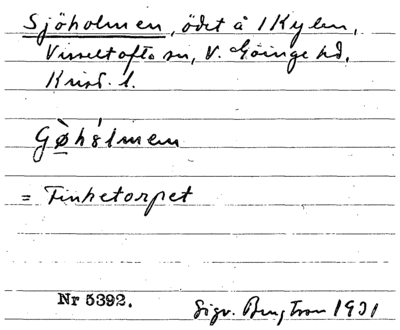 Sjöholmen, ödet å 1 Kylen,
Visseltofta sn, V. Göinge hd,
Krist. l.
Gø̀hólmen
= Finketorpet
Nr 5392. Sigv. Bengtson 1931